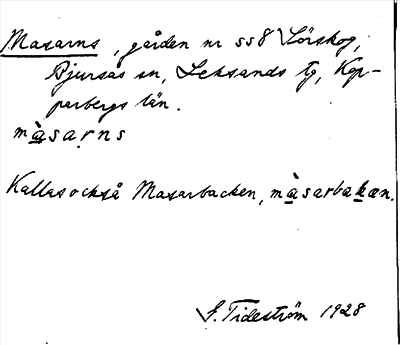 Masarns, gården nr 558 Lörskog,
Bjursås sn, Leksands tg, Kop-
parbergs län.
màsarns
Kallas också Masarbacken, màsarbakæn.
G. Tideström 1928